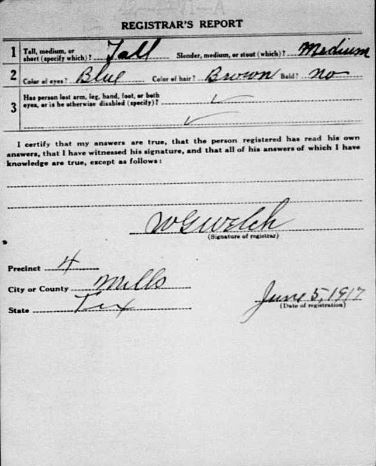 REGISTRAR'S REPORT
1 Tall, medium, or short (specify which)? Tall Slender, medium, or stout (which)? Medium
2 Color of eyes? Blue Color of hair? Brown Bald? no
3 Has person lost arm, leg, hand, foot, or both
eyes, or is he otherwise disabled (specify)?
I certify that my answers are true, that the person registered has read his own
answers, that I have witnessed his signature, and that all of his answers of which I have
knowledge are true, except as follows:
W G Welch
(Signature of registrar)
Precinct 4
City or County Mills
State Tex
June 5, 1917
(Date of registration)